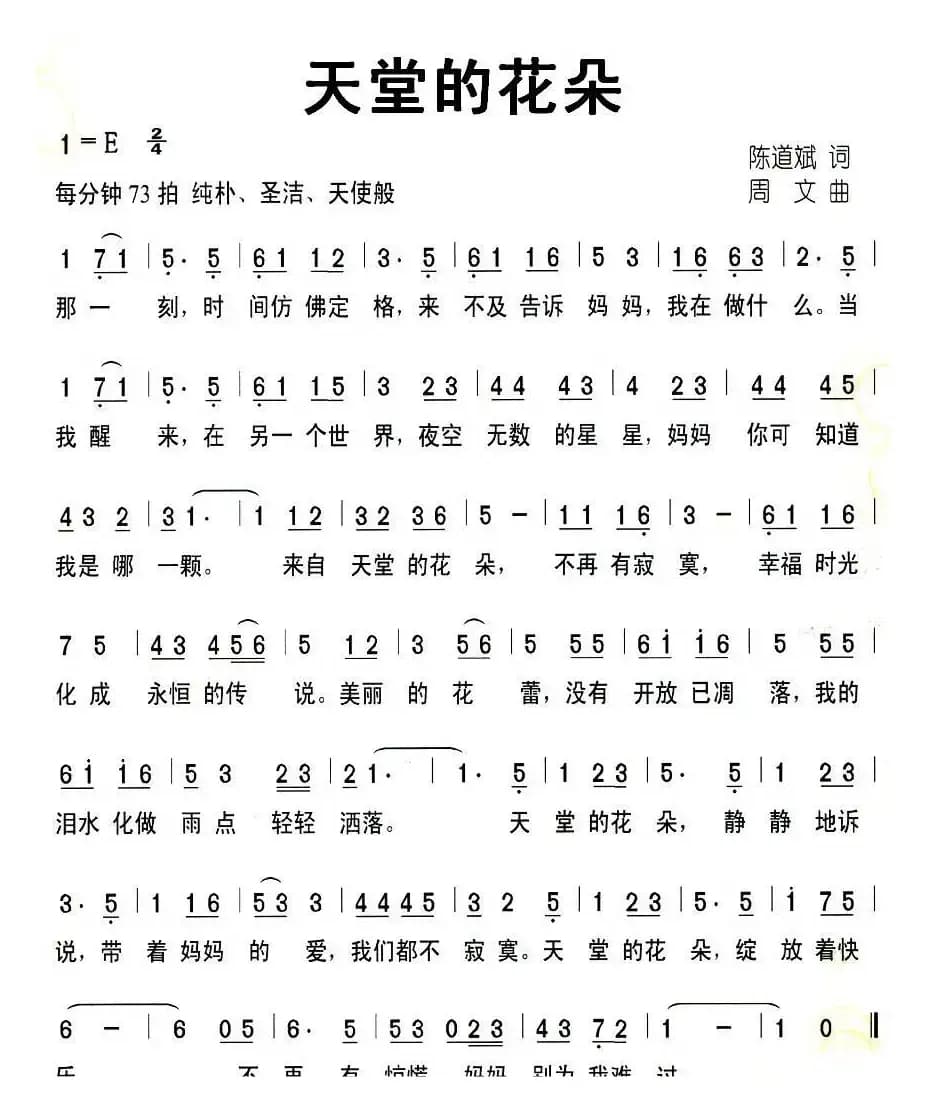 天堂的花朵
1=E 2/4
陈道斌 词
每分钟73拍 纯朴、圣洁、天使般
周 文 曲
1 7 1 | 5· 5 | 6 1 1 2 | 3· 5 | 6 1 1 6 | 5 3 | 1 6 6 3 | 2· 5 |
那 一 刻, 时 间仿 佛定 格, 来 不及 告诉 妈 妈, 我在 做什 么。当
1 7 1 | 5· 5 | 6 1 1 5 | 3 2 3 | 4 4 4 3 | 4 2 3 | 4 4 4 5 |
我 醒 来, 在 另一 个世 界, 夜空 无数 的星 星, 妈妈 你可 知道
4 3 2 | 3 1· | 1 1 2 | 3 2 3 6 | 5 － | 1 1 1 6 | 3 － | 6 1 1 6 |
我是 哪 一颗。 来自 天堂 的花 朵, 不再 有寂 寞, 幸福 时光
7 5 | 4 3 4 5 6 | 5 1 2 | 3 5 6 | 5 5 5 | 6 i i 6 | 5 5 5 |
化 成 永恒 的传 说。美丽 的 花 蕾, 没有 开放 已凋 落, 我的
6 i i 6 | 5 3 2 3 | 2 1· | 1· 5 | 1 2 3 | 5· 5 | 1 2 3 |
泪水 化做 雨 点 轻轻 洒落。 天 堂 的花 朵, 静 静 地诉
3· 5 | 1 1 6 | 5 3 3 | 4 4 4 5 | 3 2 5 | 1 2 3 | 5· 5 | i 7 5 |
说, 带 着 妈妈 的 爱, 我们都不 寂 寞。天 堂 的花 朵, 绽 放 着快
6 － | 6 0 5 | 6· 5 | 5 3 0 2 3 | 4 3 7 2 | 1 － | 1 0 ‖
乐 不 再 有 惊慌 妈妈 别为 我难 过